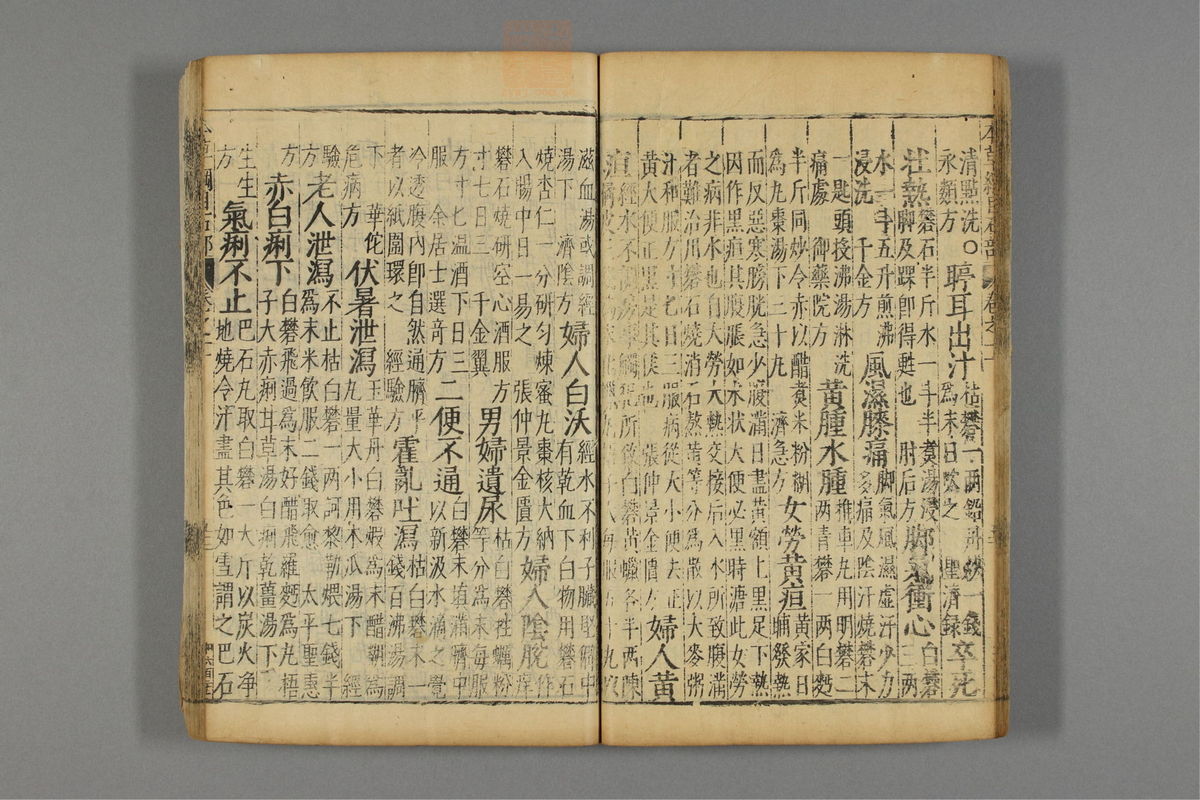 清點洗○永類方聤耳出汁枯礬一兩鉛丹炒一錢為末日吹之 聖濟錄卒死
壯熱礬石半斤水一斗半煮湯浸腳及踝即得甦也 肘后方腳氣衝心白礬三兩
水一斗五升煎沸浸洗 千金方風濕膝痛腳氣風濕虛汗少力多痛及陰汗燒礬末
一匙頭投沸湯淋洗痛處 御藥院方黃腫水腫推車丸用明礬二兩青礬一兩白麪
半斤同炒令赤以醋煮米粉糊為丸棗湯下三十丸 濟急方女勞黃疸黃家日晡發熱
而反惡寒膀胱急少腹滿目盡黃額上黑足下熱因作黑疸其腹脹如水狀大便必黑時溏此女勞
之病非水也自大勞大熱交接后入水所致腹滿者難治用礬石燒消石熬黃等分為散以大麥粥
汁和服方寸七日三服病從大小便去黃大便正黑是其候也 張仲景金匱方婦人黃
疸經水不調房事觸犯所致白礬黃蠟各半兩陳橘皮三
滋血湯或調經湯下 濟陰方婦人白沃經水不利子臟堅僻中有乾血下白物用礬石
燒杏仁一分研勻煉蜜丸棗核大納入腸中日一易之 張仲景金匱方婦人陰脫作痒
礬石燒研空心酒服方寸七日三 千金翼男婦遺尿枯白礬牡蠣粉等分為末每服
方寸七温酒下日三服 余居士選奇方二便不通白礬末填滿臍中以新汲水滴之覺
冷透腹內即自然通臍平者以紙圍環之 經驗方霍亂吐瀉枯白礬末一錢百沸湯調
下 華佗危病方伏暑泄瀉玉華丹白礬煆為末醋糊為丸量大小用木瓜湯下 經
驗方老人泄瀉不止枯白礬一兩訶黎勒煨七錢半為末米飲服二錢取愈 太平聖惠
方赤白痢下白礬飛過為末好醋飛羅麪為丸梧子大赤痢甘草湯白痢乾薑湯下
生生方氣痢不止巴石丸取白礬一大斤以炭火淨地燒令汁盡其色如雪謂之巴石